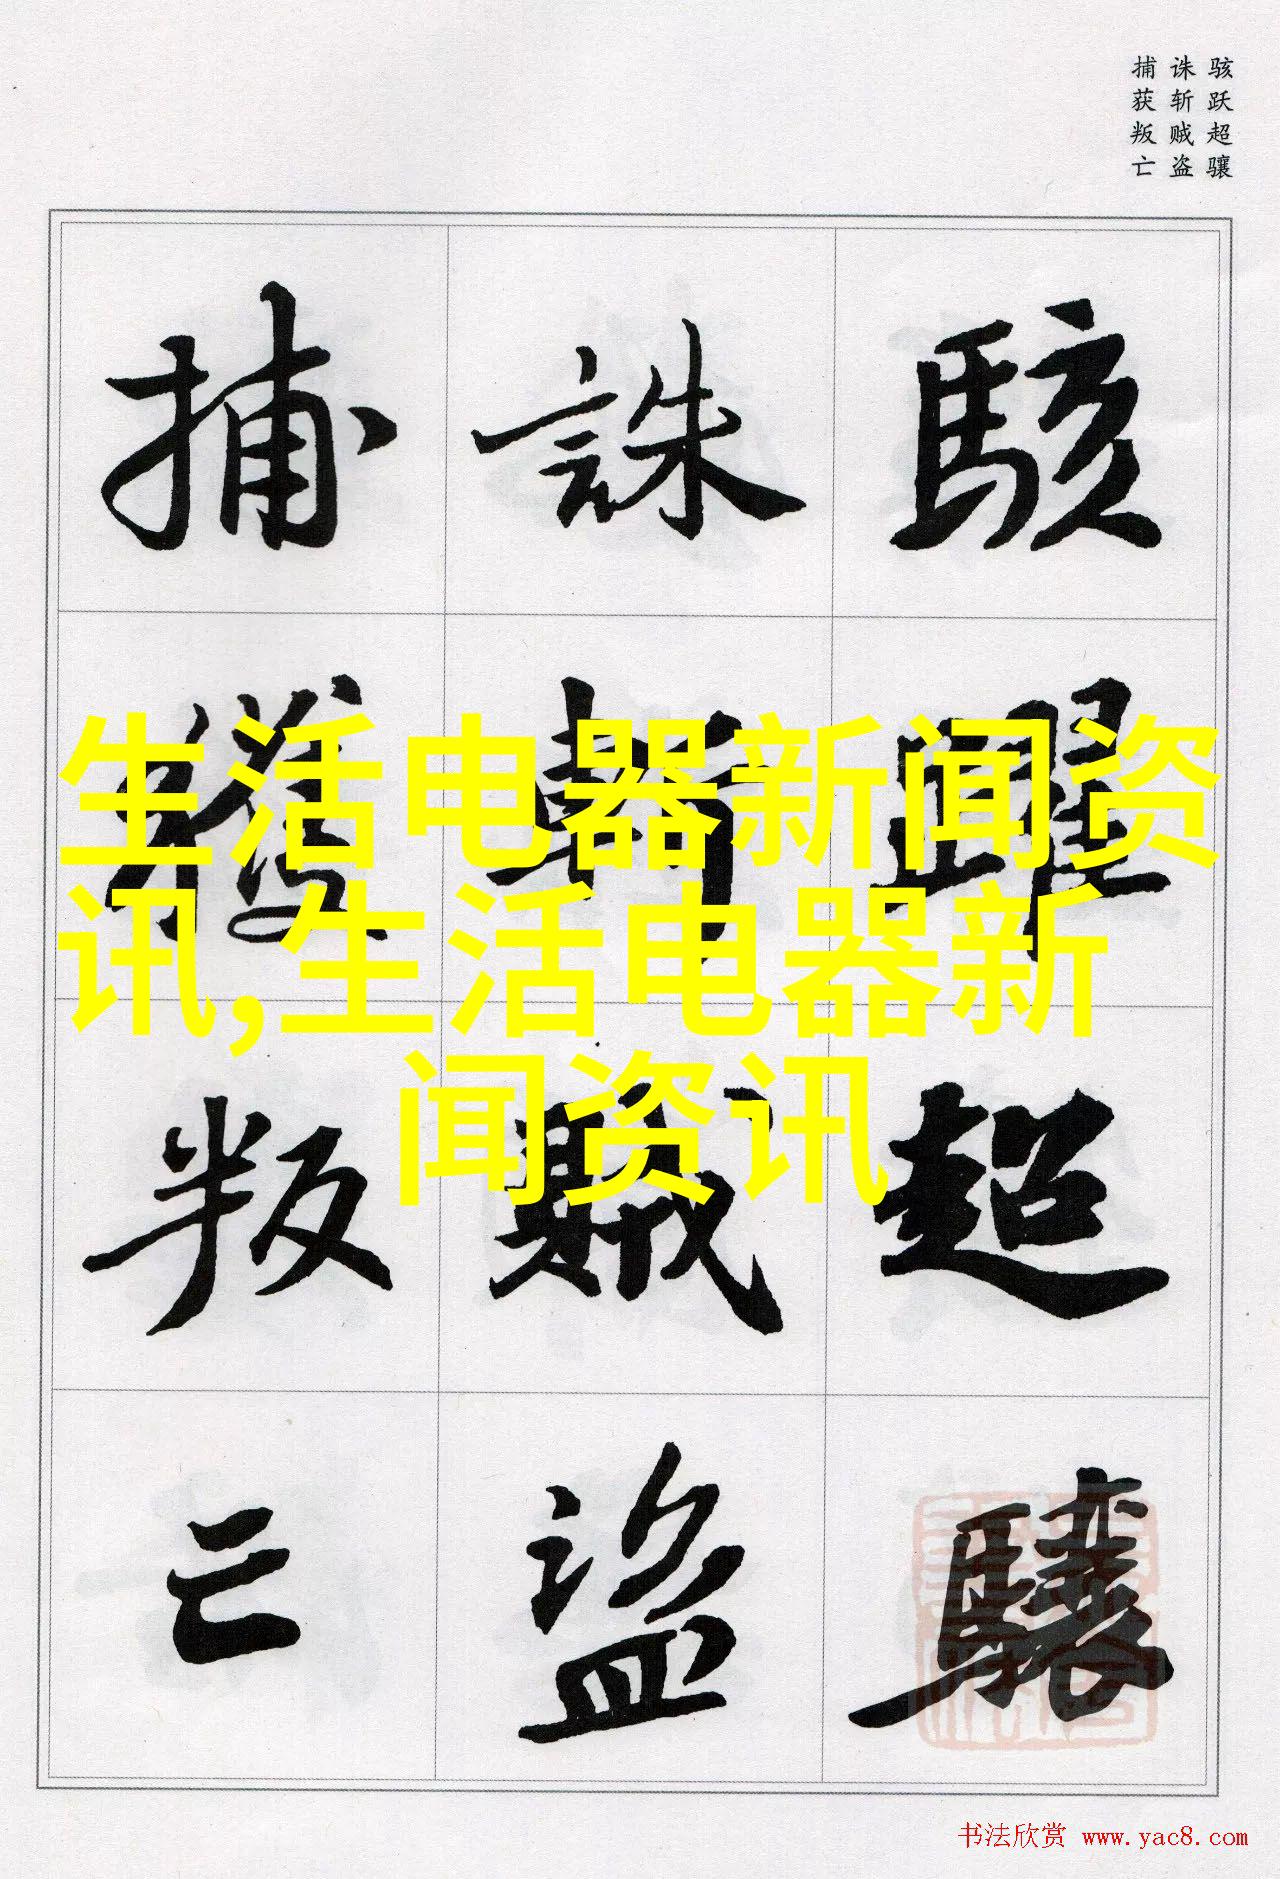 骇跃超骧
诛斩贼盗
捕获叛亡
駭躍超驤
誅斬賊盜
捕獲叛亡
生活电器新闻资
讯,生活电器新
闻资讯
书法欣赏 www.yac8.com